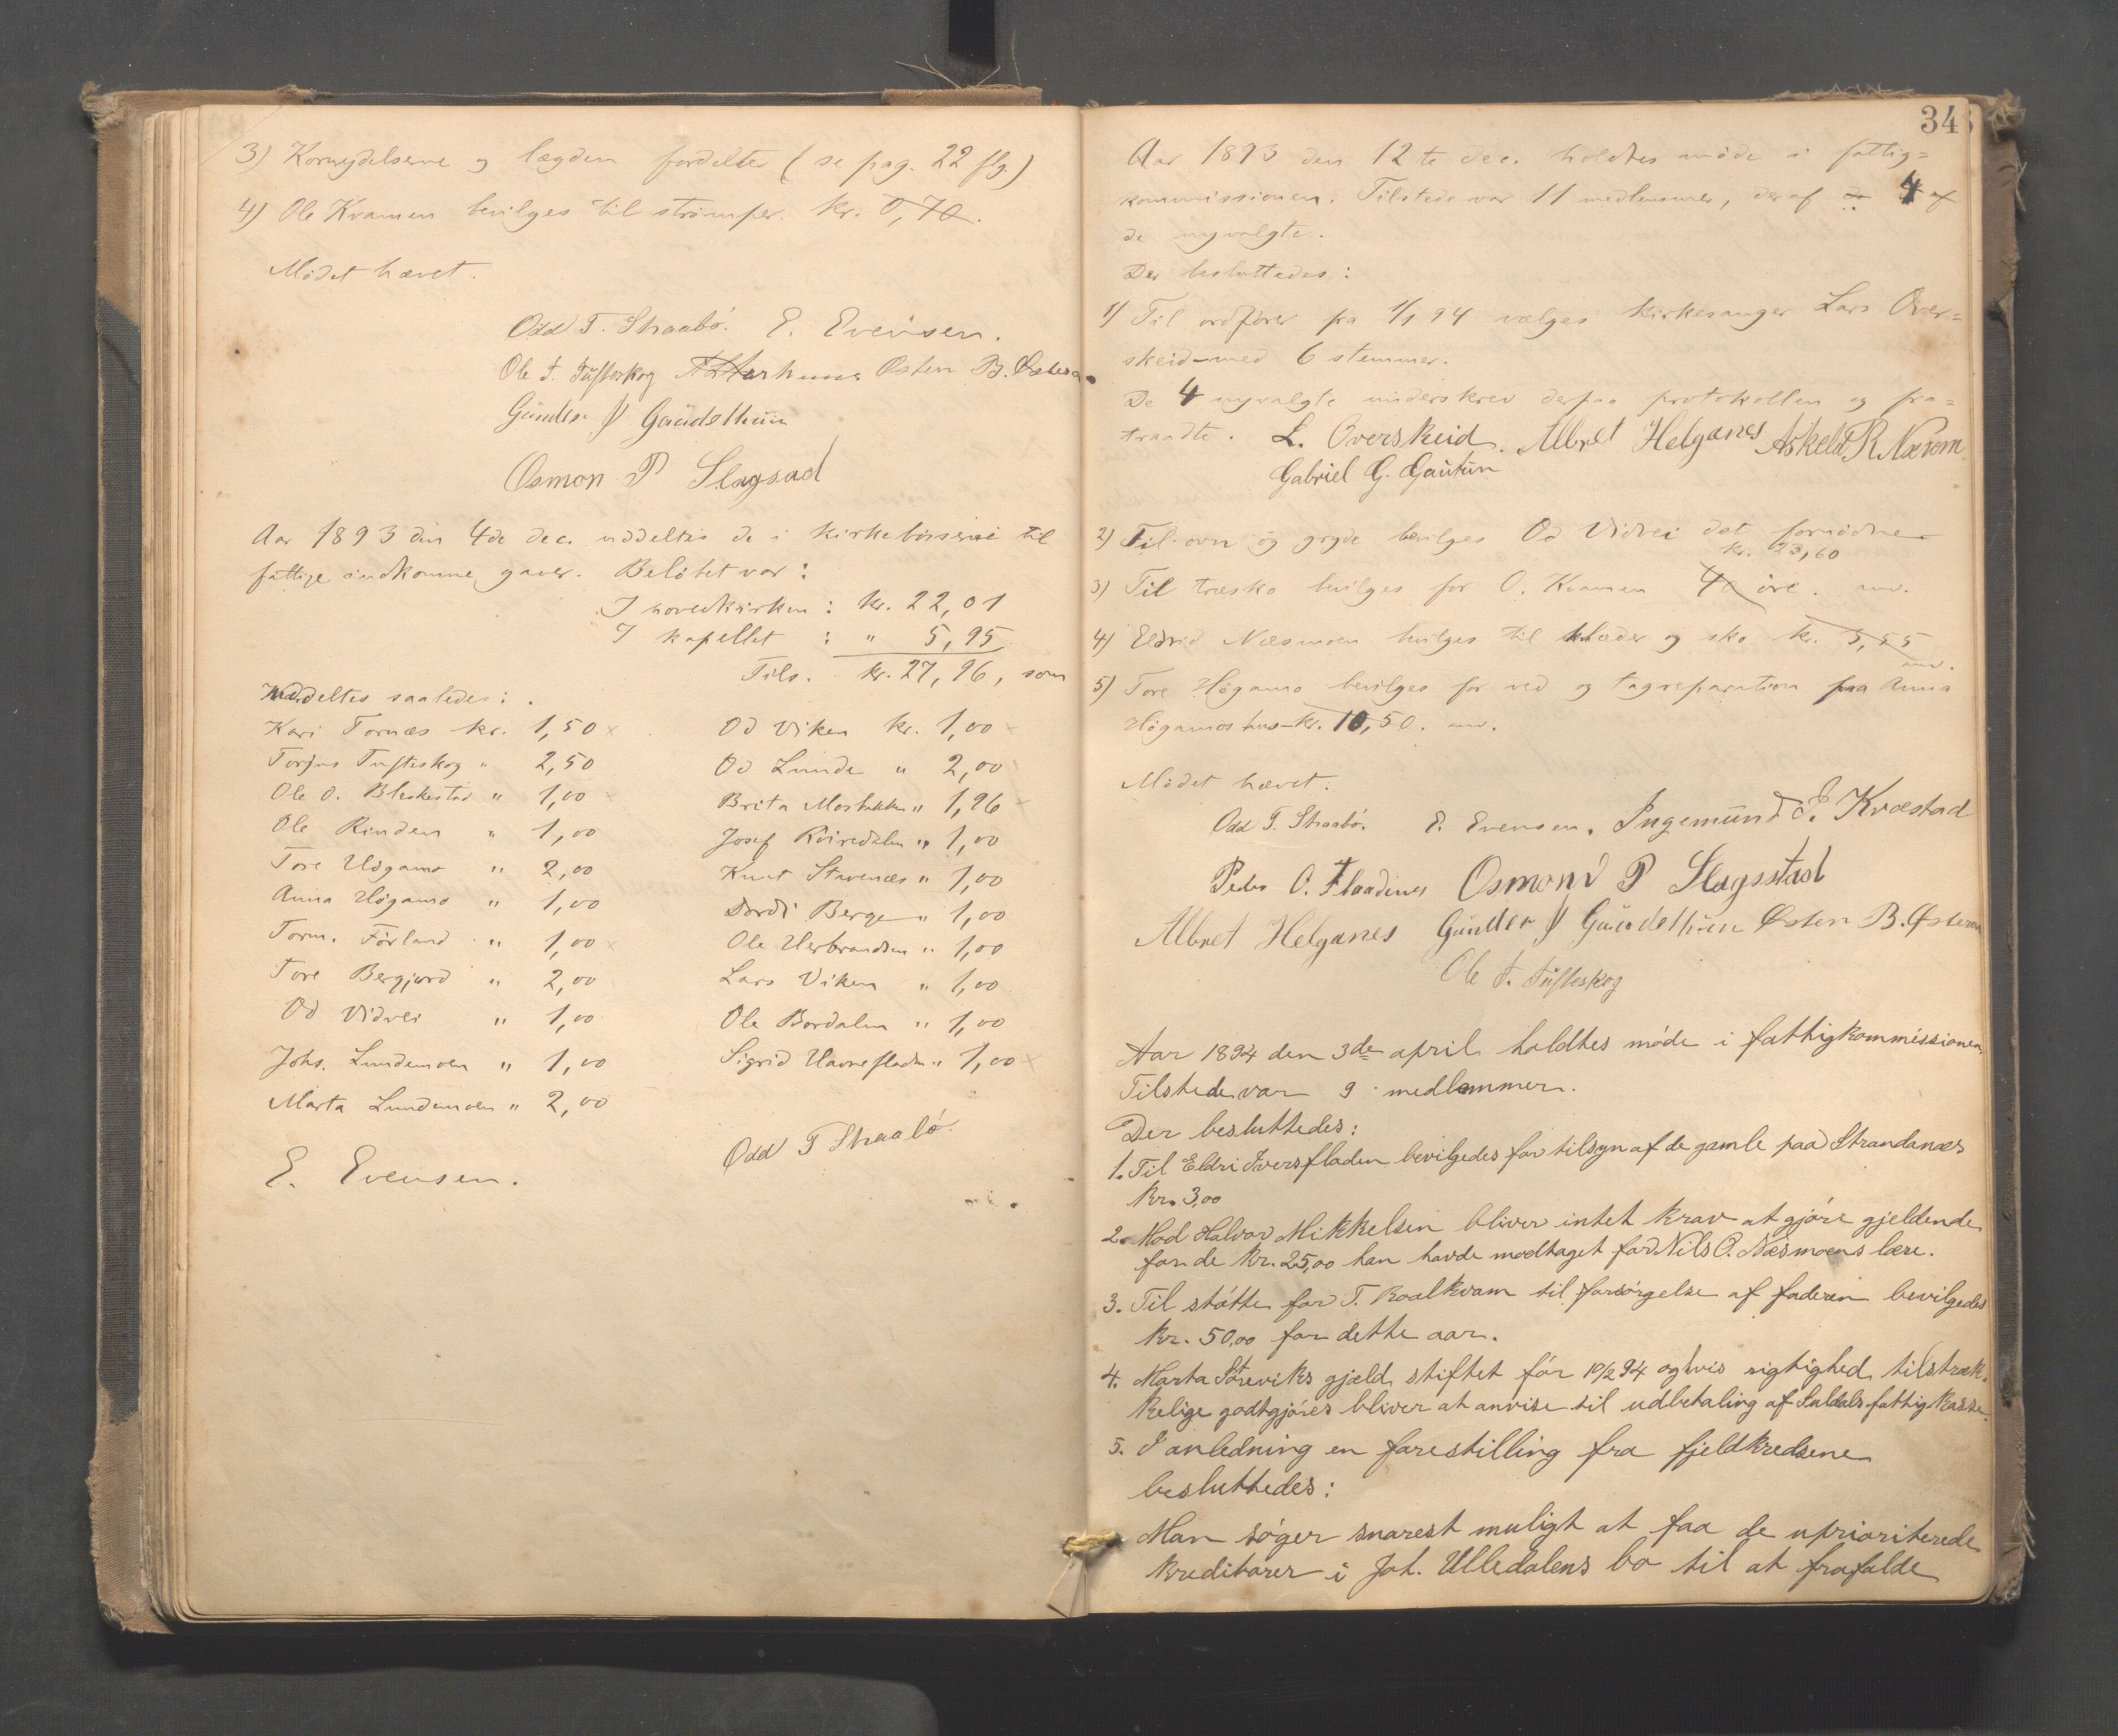 3) Kornydelserne og lægden fordeltes (se pag. 22 flg.)
4) Ole Kvamen bevilges til strömper. kr. 0,70.
Mödet hævet.
Odd T. Straabö. E. Evensen.
Ole T. Tufteskog Østen B. Østerå
Gunder J Guudethuun
Osmon P Slagsad
Aar 1893 den 4de dec. uddeltes de i kirkebösserne til
fattige indkomne gaver. Belöbet var:
I hovedkirken: kr. 22,01
I kapellet : " 5,95
Tils. kr. 27,96, som
uddeltes saaledes:
Kari Tornæs kr. 1,50 ×
Torjus Tufteskog " 2,50
Ole O. Bleskestad " 1,00
Ole Rinden " 1,00
Tore Högamo " 2,00
Anna Högamo " 1,00
Torm. Förland " 1,00 ×
Tore Bergjord " 2,00
Od Vidvei " 1,00
Johs. Lundemoen " 1,00
Marta Lundemoen " 2,00
Od Viken kr. 1,00
Od Lunde " 2,00
Brita Mosbakken " 1,96
Josef Kviredalen " 1,00
Knut Stavenæs " 1,00
Dordi Berge " 1,00
Ole Herbrandsen " 1,00
Lars Viken " 1,00
Ole Bordalen " 1,00
Sigrid Havrefladen " 1,00 ×
E. Evensen.
Odd T Straabö.
34
Aar 1893 den 12te dec. holdtes möde i fattig=
kommissionen. Tilstede var 11 medlemmer, deraf 4 af
de nyvalgte.
Der besluttedes:
1) Til ordförer fra 1/1 94 vælges kirkesanger Lars Over=
skeid med 6 stemmer.
De 4 nyvalgte underskrev derpaa protokollen og fra=
traadte. L. Overskeid. Albret Helganes Askeld R. Nærem
Gabriel G. Gautun
2) Til ovn og gryde bevilges Od Vidvei det fornödne
kr. 23,60
3) Til træsko bevilges for O. Kvamen 40 öre. anv.
4) Eldrid Næsmoen bevilges til klæder og sko kr. 5,55
anv.
5) Tore Högamo bevilges for ved og tagreparation paa Anna
Högamos hus kr. 10,50. anv.
Mödet hævet.
Odd T. Straabö. E. Evensen. Ingemund J. Kvæstad
Peder O. Flaadines Osmond P Slagsstad
Albret Helganes Gunder J Guudethuun Østen B. Østerå
Ole T. Tufteskog
Aar 1894 den 3de april holdtes möde i fattigkommissionen
Tilstede var 9 medlemmer.
Der besluttedes:
1. Til Eldri Iversfladen bevilgedes for tilsyn af de gamle paa Strandanæs
kr. 3,00
2. Mod Halvor Mikkelsen bliver intet krav at gjöre gjeldende
for de kr. 25,00 han havde modtaget for Nils O. Næsmoens lære.
3. Til stötte for T. Roalkvam til forsörgelse af faderen bevilgedes
kr. 50,00 for dette aar.
4. Marta Söreviks gjæld stiftet för 10/2 94 og hvis rigtighed tilstræk-
kelige godtgjöres bliver at anvise til udbetaling af Suldals fattigkasse.
5. I anledning en forestilling fra fjeldkredsene
besluttedes:
Man söger snarest muligt at faa de uprioriterede
kreditorer i Joh. Ulledalens bo til at frafalde